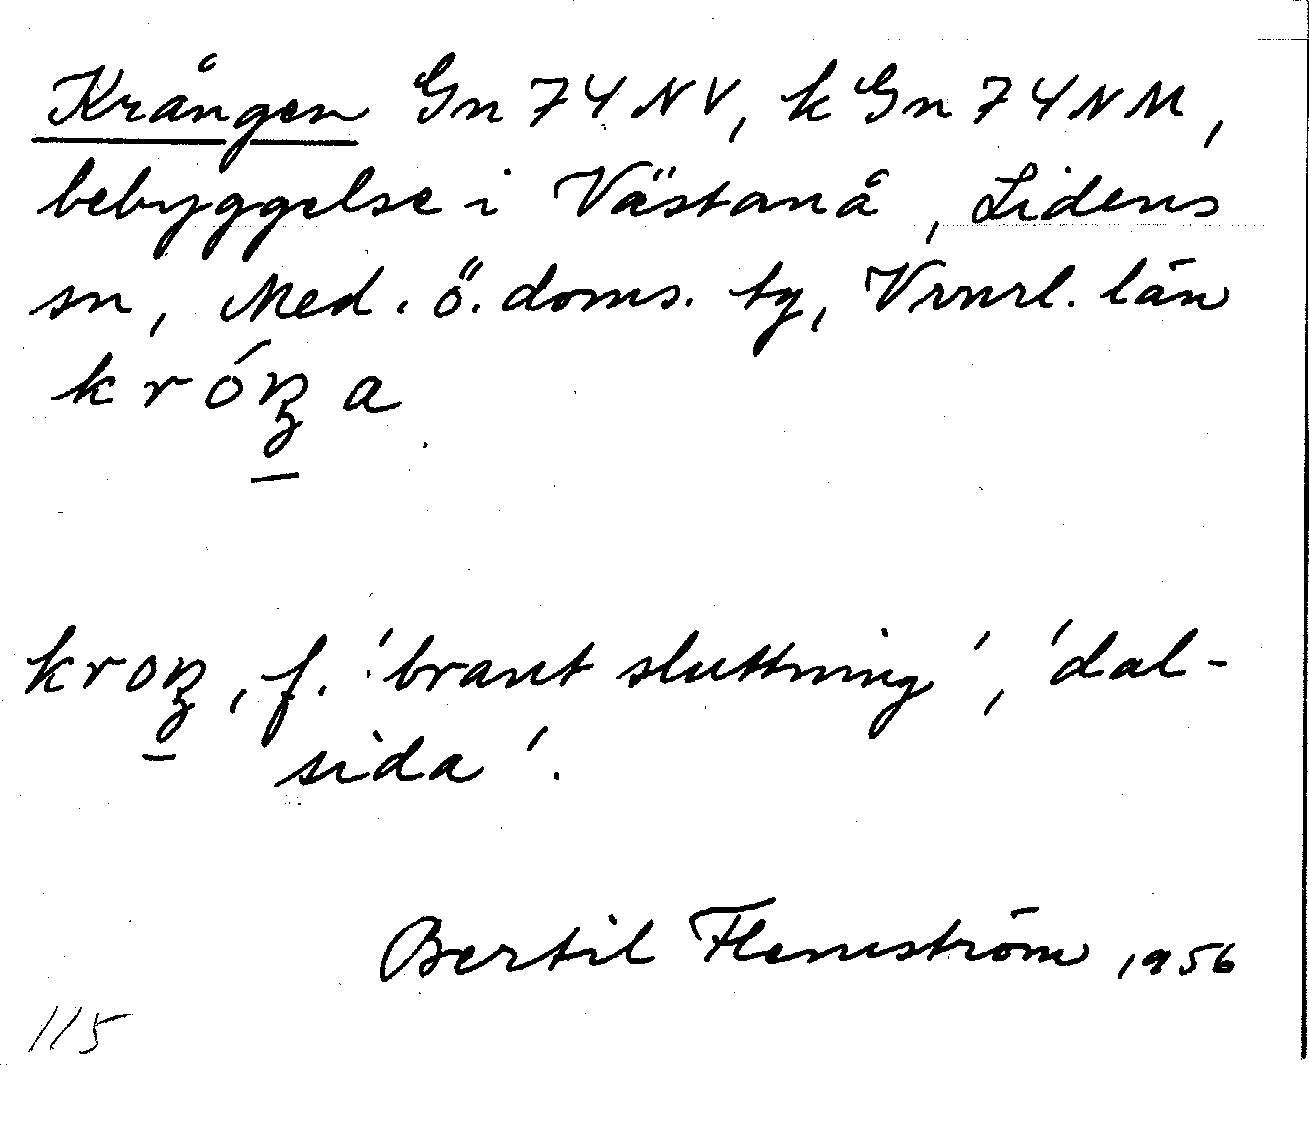 Krången Gn 74 NV, k Gn 74 NM,
bebyggelse i Västanå, Lidens
sn, Med. ö. doms. tg, Vrnrl. län
króŋa
kroŋ, f. 'brant sluttning', 'dal-
sida'.
Bertil Flemström 1956
115